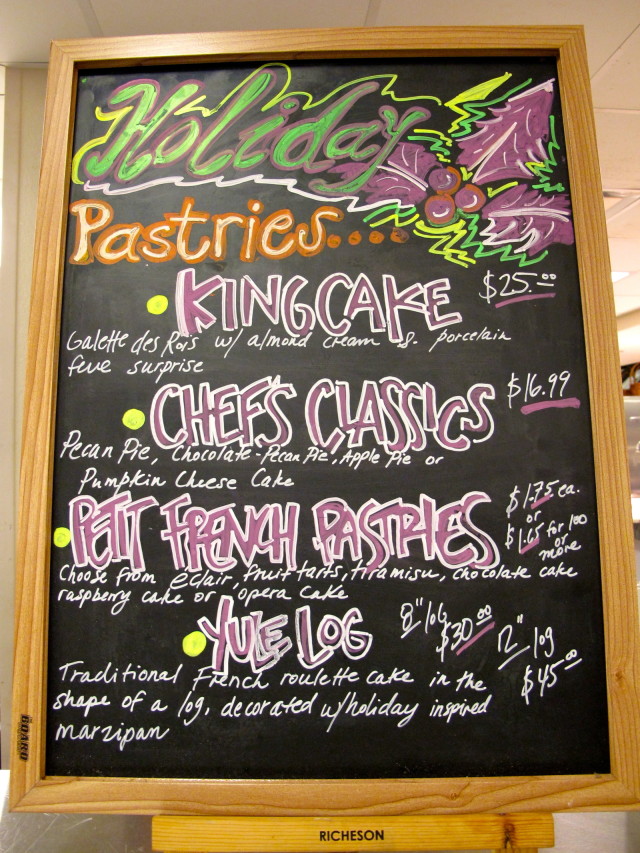 Holiday
Pastries....
KING CAKE $25.00
Galette des Rois w/ almond cream & porcelain
feve surprise
CHEF'S CLASSICS $16.99
Pecan Pie, Chocolate-Pecan Pie, Apple Pie or
Pumpkin Cheese Cake
PETIT FRENCH PASTRIES $1.75 ea.
or
$1.65 for 100
or
more
Choose from eclair, fruit tarts, tiramisu, chocolate cake
raspberry cake or, opera cake
YULE LOG 8" log $30.00 12" log $45.00
Traditional French roulette cake in the
shape of a log, decorated w/holiday inspired
marzipan
BOARD
RICHESON